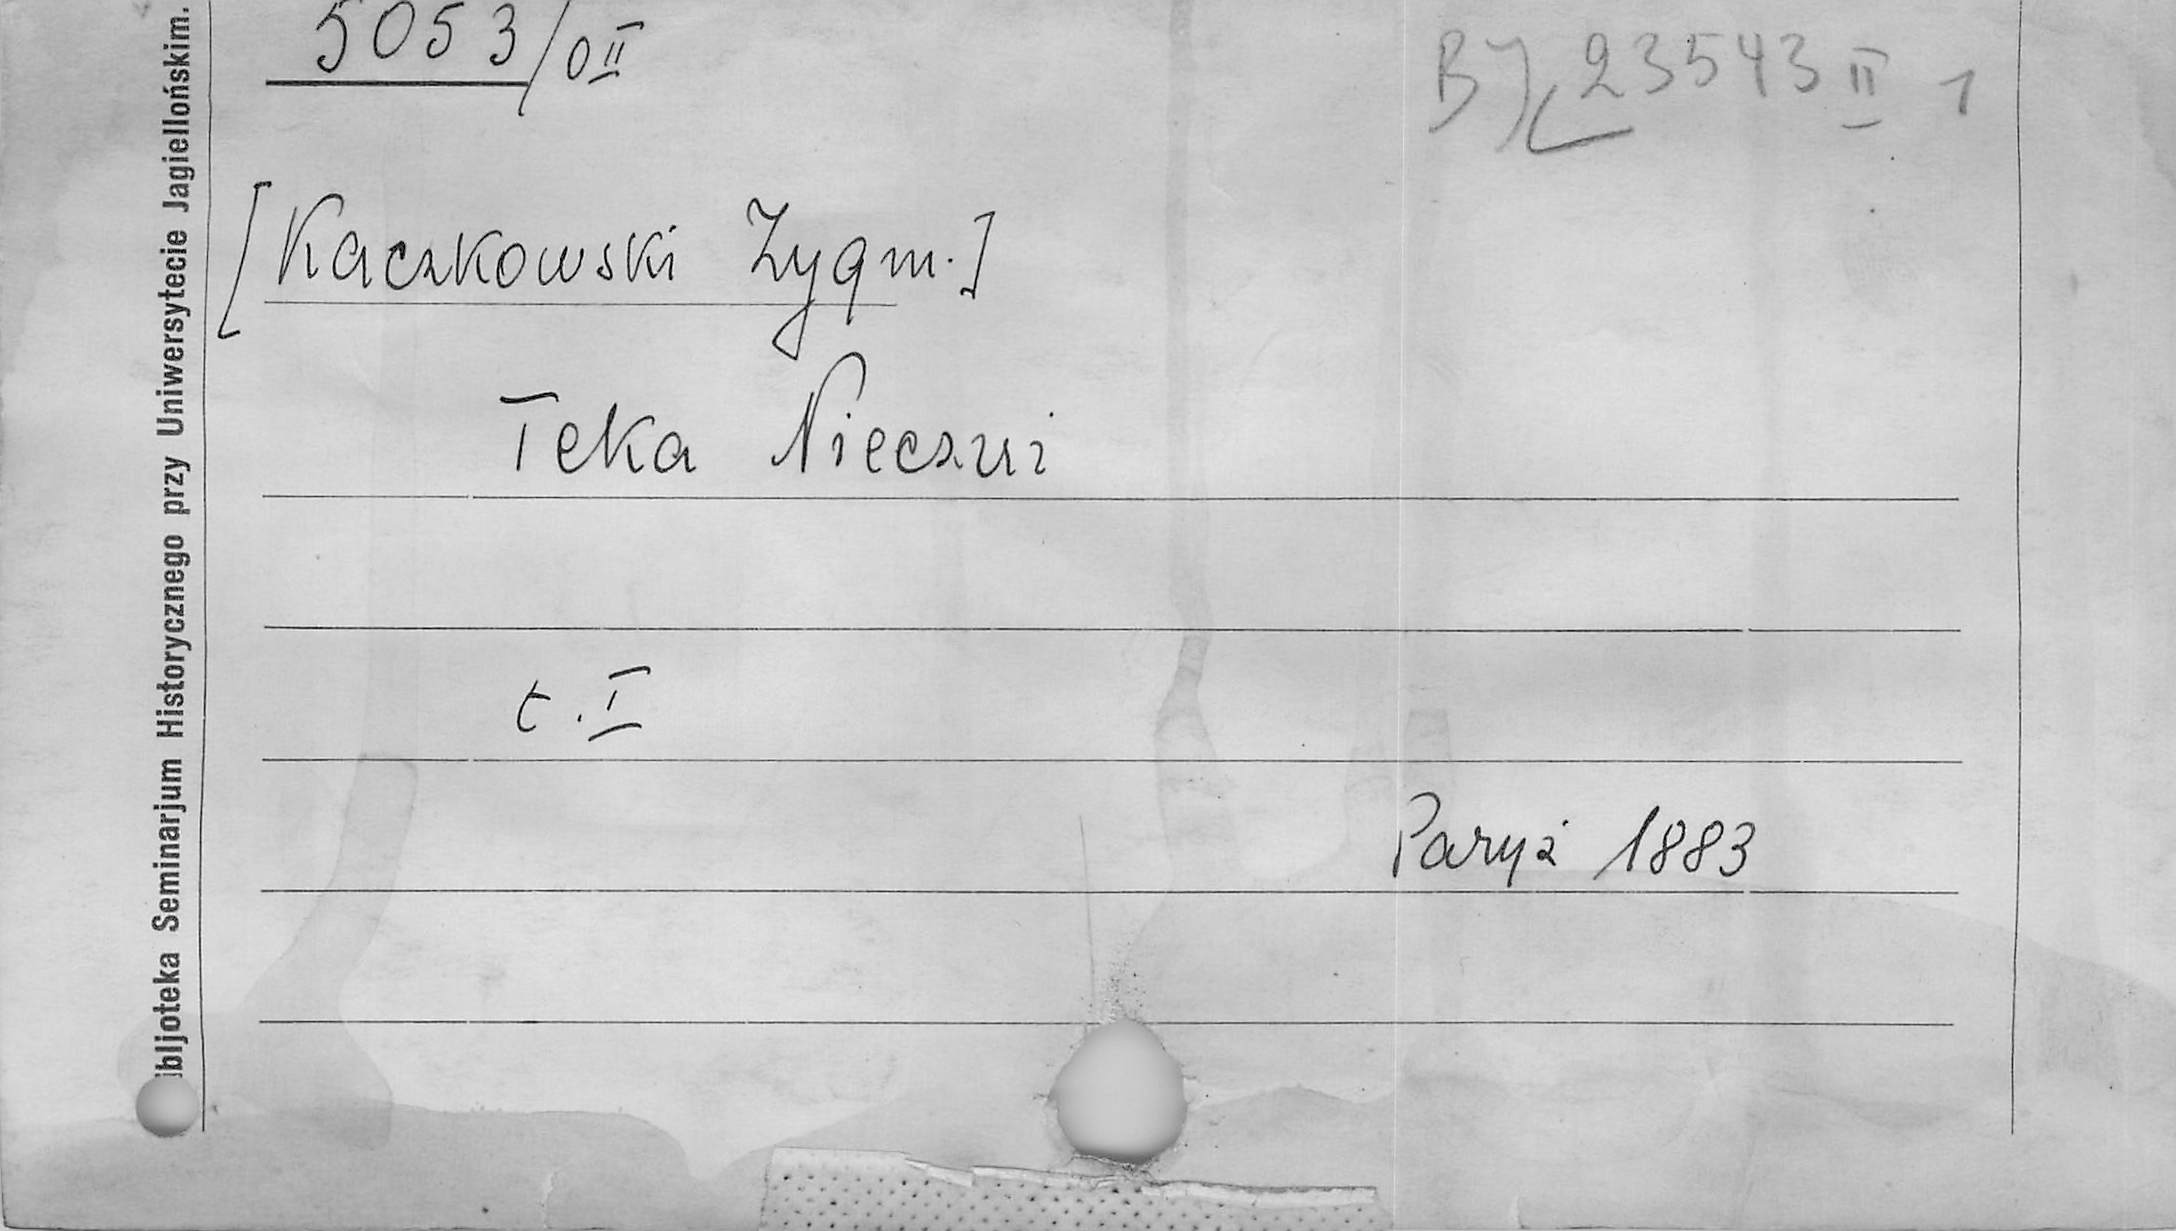 5053/0II
B) 23543 II 1
[Kaczkowski Zygm.]
Teka Nieczui
t. I
Paryż 1883
ibljoteka Seminarjum Historycznego przy Uniwersytecie Jagiellońskim.